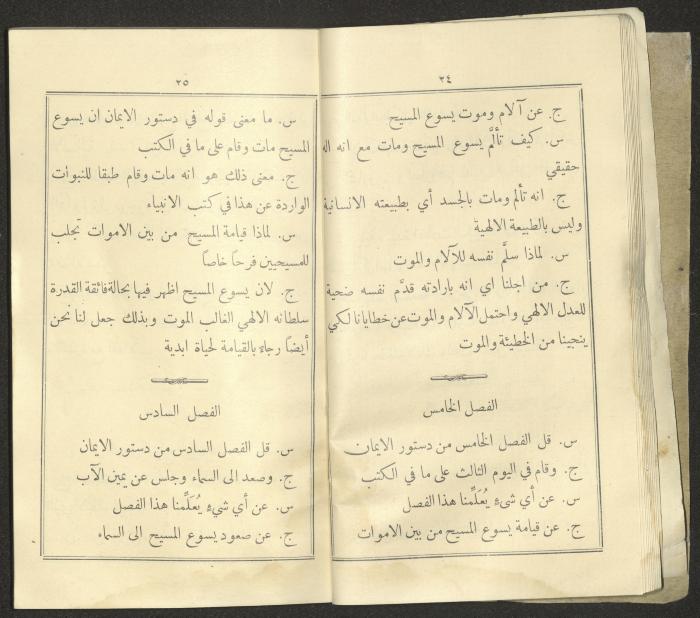 ٢٤
ج. عن آلام وموت يسوع المسيح
س. كيف تألَّم يسوع المسيح ومات مع انه اله
حقيقي
ج. انه تألم ومات بالجسد أي بطبيعته الانسانية
وليس بالطبيعة الالهية
س. لماذا سلَّم نفسه للآلام والموت
ج. من اجلنا اي انه بارادته قدَّم نفسه ضحية
للعدل الالهي واحتمل الآلام والموت عن خطايانا لكي
ينجينا من الخطيئة والموت
الفصل الخامس
س. قل الفصل الخامس من دستور الايمان
ج. وقام في اليوم الثالث على ما في الكتب
س. عن أي شيءٍ يُعَلِّمنا هذا الفصل
ج. عن قيامة يسوع المسيح من بين الاموات
٢٥
س. ما معنى قوله في دستور الايمان ان يسوع
المسيح مات وقام على ما في الكتب
ج. معنى ذلك هو انه مات وقام طبقا للنبوأت
الواردة عن هذا في كتب الانبياء
س. لماذا قيامة المسيح من بين الاموات تجلب
للمسيحيين فرحاً خاصاً
ج. لان يسوع المسيح اظهر فيها بحالة فائقة القدرة
سلطانه الالهي الغالب الموت وبذلك جعل لنا نحن
أيضاً رجاء بالقيامة لحياة ابدية
الفصل السادس
س. قل الفصل السادس من دستور الايمان
ج. وصعد الى السماء وجلس عن يمين الآب
س. عن أي شيءٍ يُعَلِّمنا هذا الفصل
ج. عن صعود يسوع المسيح الى السماء